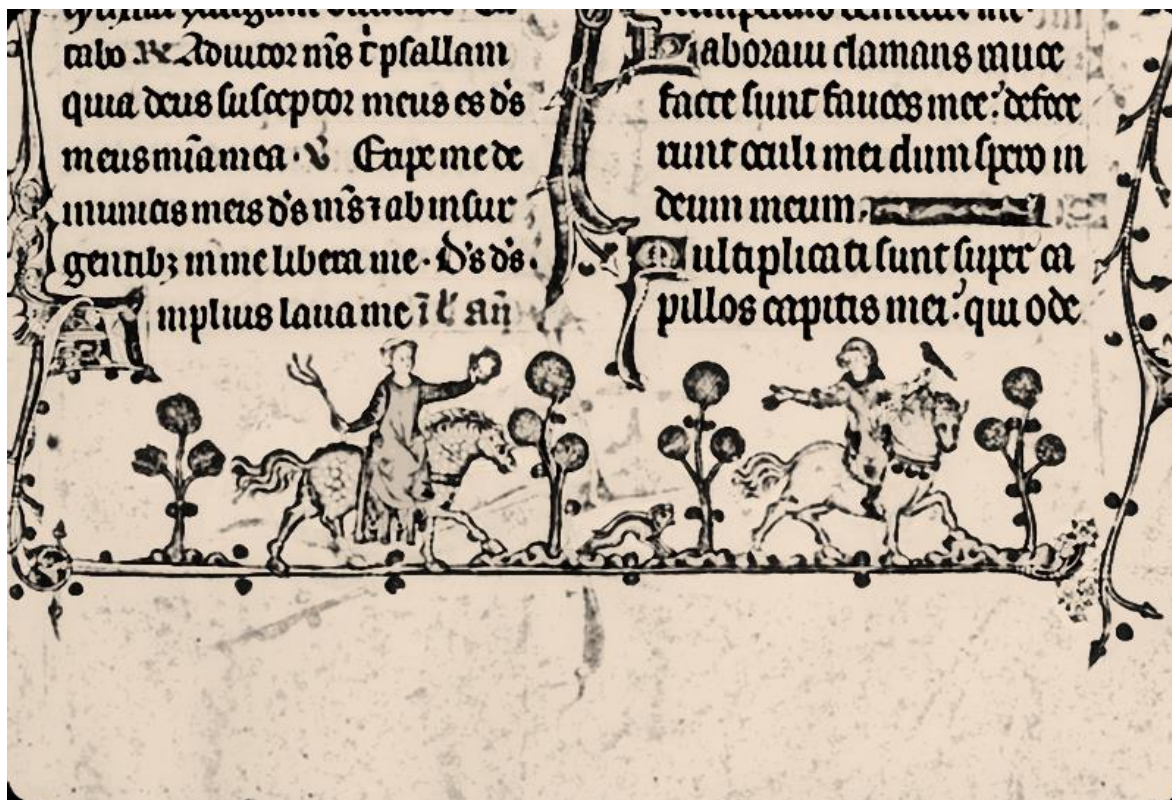 tabo. R. Adiutor m̄s t̄ psallam
quia deus susceptor meus es d̄s
meus mīa mea. V Eripe me de
inimicis meis d̄s m̄s ⁊ ab insur
gentibꝫ in me libera me. D̄s d̄s.
Amplius laua me
Laboraui clamans rauce
facte sunt fauces mee: defece
runt oculi mei dum spero in
deum meum.
Multiplicati sunt super ca
pillos capitis mei: qui ode